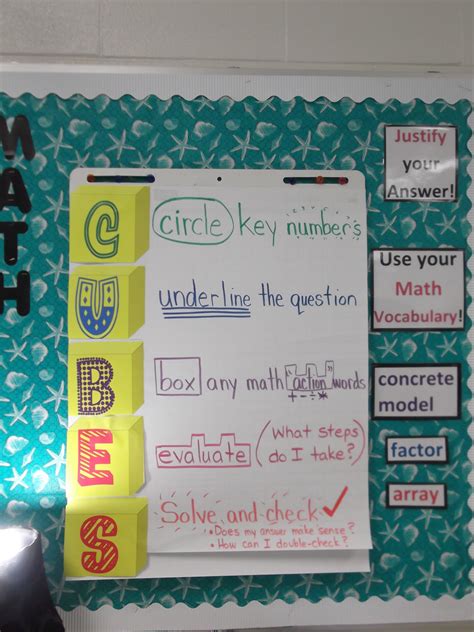 MATH
C circle key numbers
U underline the question
B box any math "action" words
+ - ÷ *
E evaluate (What steps do I take?)
S Solve and check ✓
• Does my answer make sense?
• How can I double-check?
Justify
your
Answer!
Use your
Math
Vocabulary!
concrete
model
factor
array